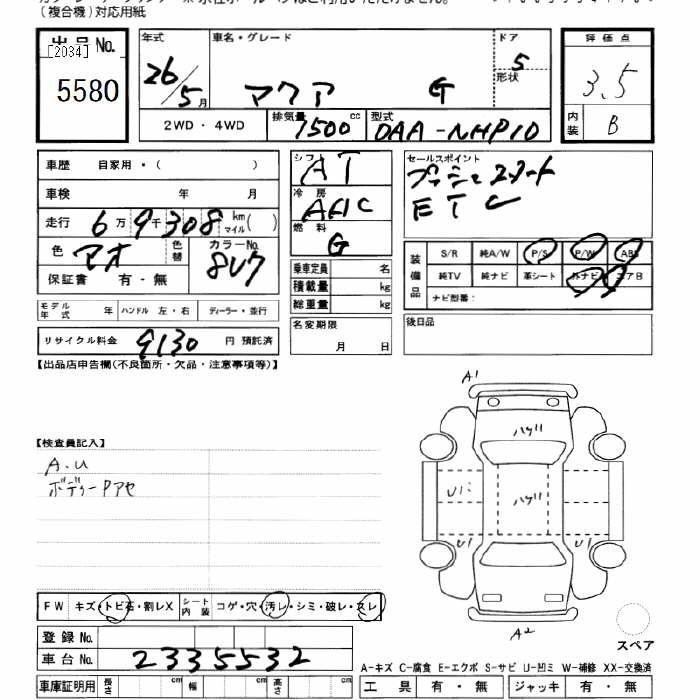 (複合機)対応用紙
出品No.
[2034]
5580
年式 26/5月
車名・グレード アクア G
ドア 5
形状
2WD・4WD
排気量 1500 cc
型式 DAA-NHP10
評価点 3.5
内装 B
車歴 自家用・( )
車検 年 月
走行 6万9千308 km マイル( )
色 アオ 色替
カラーNo. 8U7
保証書 有・無
シフト AT
冷房 AAC
燃料 G
乗車定員 名
積載量 kg
総重量 kg
セールスポイント
プッシュスタート
ETC
装備品
S/R 純A/W P/S P/W ABS
純TV 純ナビ 革シート 外ナビ エアB
ナビ型番:
モデル年式 年 ハンドル 左・右 ディーラー・並行
リサイクル料金 9130 円 預託済
名変期限 月 日
後日品
【出品店申告欄(不良箇所・欠品・注意事項等)】
【検査員記入】
A.U
ボディーPアセ
A1
ハゲ
U1
ハゲ
U1
U1
A2
スペア
FW キズ・トビ石・割レX
シート内装 コゲ・穴・汚レ・シミ・破レ・スレ
登録No.
車台No. 2335532
A-キズ C-腐食 E-エクボ S-サビ U-凹ミ W-補修 XX-交換済
車庫証明用 長さ cm 幅 cm 高さ cm
工具 有・無 ジャッキ 有・無